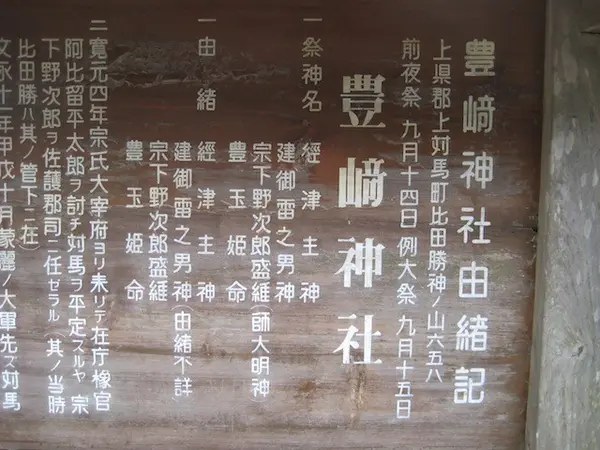 豊﨑神社由緒記
上県郡上対馬町比田勝神ノ山六五八
前夜祭 九月十四日 例大祭 九月十五日
豊﨑神社
一祭神名 經津主神
建御雷之男神
宗下野次郎盛維(帥大明神)
豊玉姫命
一由緒 經津主神
建御雷之男神(由緒不詳
宗下野次郎盛維
豊玉姫命
二寛元四年宗氏大宰府ヨリ来リテ在庁橡官
阿比留平太郎ヲ討チ対馬ヲ平定スルヤ 宗
下野次郎ヲ佐護郡司ニ任ゼラル(其ノ当時
比田勝ハ其ノ管下ニ在)
文永十一年甲戊十月蒙麗ノ大軍先ズ対馬